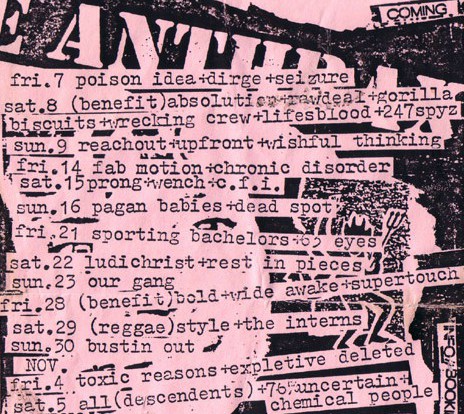 COMING
E ANTHRAX
fri.7 poison idea+dirge+seizure
sat.8 (benefit)absolution+rawdeal+gorilla
biscuits+wrecking crew+lifesblood+247spyz
sun.9 reachout+upfront+wishful thinking
fri.14 fab motion+chronic disorder
sat.15prong+wench+c.f.i.
sun.16 pagan babies+dead spot
fri.21 sporting bachelors+69 eyes
sat.22 ludichrist+rest in pieces
sun.23 our gang
fri.28 (benefit)bold+wide awake+supertouch
sat.29 (reggae)style+the interns
sun.30 bustin out
NOV.
fri.4 toxic reasons+expletive deleted
sat.5 all(descendents)+76%uncertain+
chemical people
TO BOOK